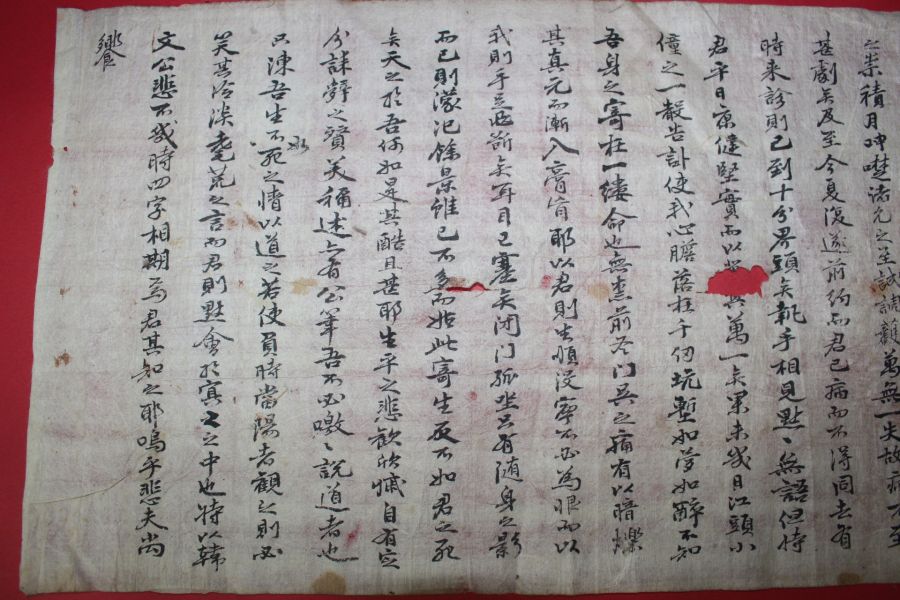 之祟積月呻噬諸允之至誠調護萬無一失故病不至
甚劇矣及至今夏復遊前 而君已病而不得同去有
時来診則已到十分界頭矣執手相見黙〻無語但恃
君平日康健堅實而以 其萬一矣果未幾日江頭小
僮之一聲告訃使我心膽落在千仞坑塹如夢如醉不知
吾身之寄在一縷命也無柰前冬門吳之痛有以暗爍
其真元而漸入膏肓耶以君則生順没寧不必為恨而以
我則手足 斯矣耳目已塞矣闭门孤坐只有随身之影
而已則濛汜餘景雖已不多而姑此寄生反不如君之死
矣天之於吾何如是其酷且甚耶生平之悲歡欣慽自有定
分誄辭之贊美稱述亦有公筆吾不必噭〻説道者也
只陳吾生不死之情以道之若使負時當陽者觀之則必
笑其冷淡耄荒之言而君則黙會於寞〻之中也特以韓
文公悲不幾時四字相期焉君其知之耶嗚乎悲夫尚
饗